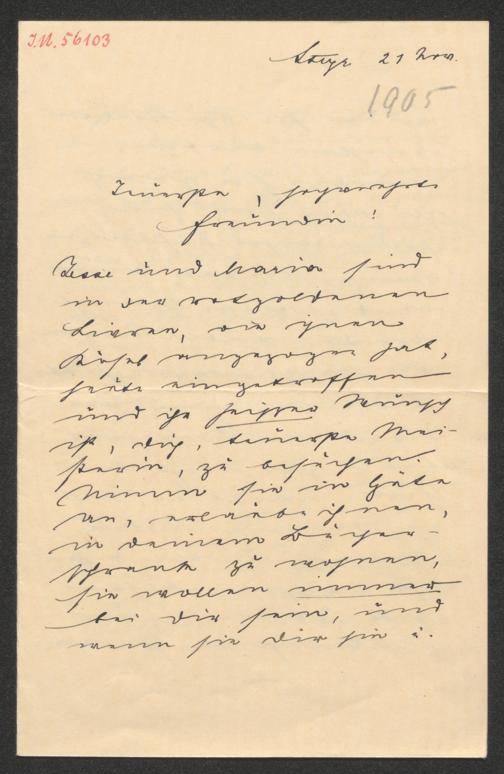 I.N. 56103
Steyr 21 Nov.
1905
Teuerste, hochverehrte
Freundin!
Jesse und Maria sind
in der rotgoldenen
Livree, die ihnen
Kösel angezogen hat,
heute eingetroffen
und ihr heisser Wunsch
ist, dich, teuerste Mei-
sterin, zu besuchen.
Nimm sie in Güte
an, erlaube ihnen,
in deinem Bücher-
schrank zu wohnen,
sie wollen immer
bei dir sein, und
wenn sie dir hie u.